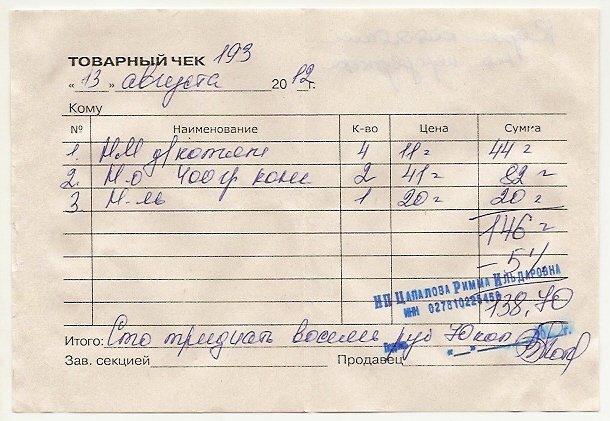 ТОВАРНЫЙ ЧЕК 193
"13" августа 2012 г.
Кому
№ Наименование К-во Цена Сумма
1. 4 11 г 44 г
2. М-о 400 гр 2 41 г 82 г
3. М-ль 1 20 г 20 г
146 г
- 5%
ИП ЦАПАЛОВА РИММА ИЛЬДАРОВНА
ИНН
138,70
Итого: Сто тридцать восемь руб 70 коп
Зав. секцией Продавец